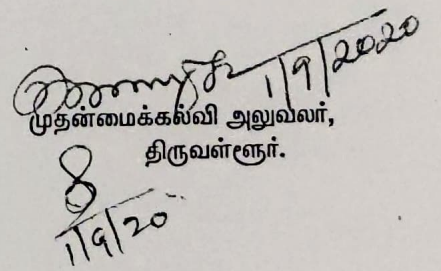 1/9/2020
முதன்மைக்கல்வி அலுவலர்,
திருவள்ளூர்.
1/9/20